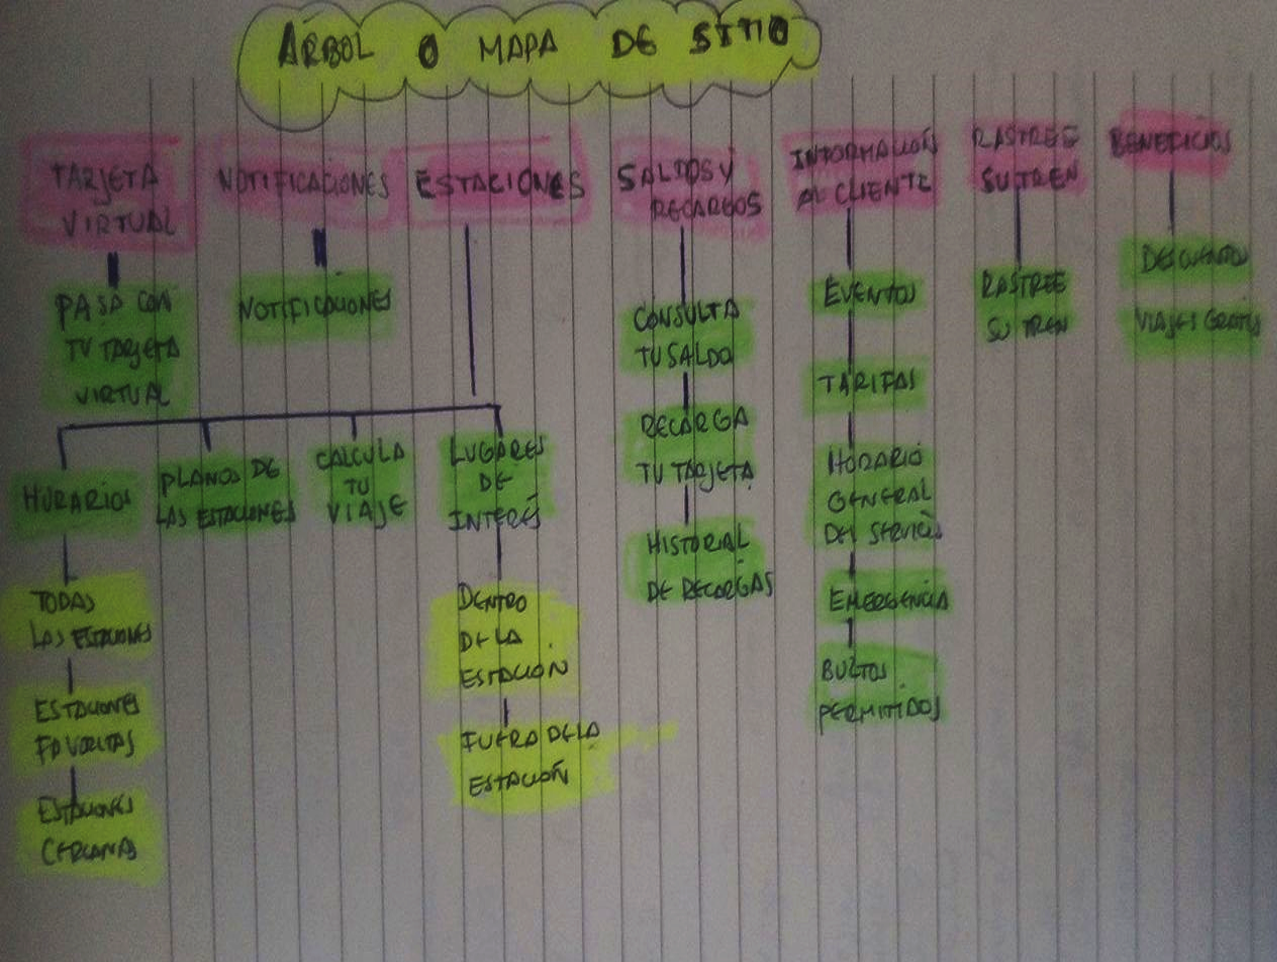 ÁRBOL O MAPA DE SITIO
TARJETA
VIRTUAL
PASA CON
TU TARJETA
VIRTUAL
NOTIFICACIONES
NOTIFICACIONES
ESTACIONES
HORARIOS
TODAS
LAS ESTACIONES
ESTACIONES
FAVORITAS
ESTACIONES
CERCANAS
PLANOS DE
LAS ESTACIONES
CALCULA
TU
VIAJE
LUGARES
DE
INTERÉS
DENTRO
DE LA
ESTACIÓN
FUERA DE LA
ESTACIÓN
SALDOS Y
RECARGOS
CONSULTA
TU SALDO
RECARGA
TU TARJETA
HISTORIAL
DE RECARGAS
INFORMACIÓN
AL CLIENTE
EVENTOS
TARIFAS
HORARIO
GENERAL
DEL SERVICIO
EMERGENCIA
BULTOS
PERMITIDOS
RASTREE
SU TREN
RASTREE
SU TREN
BENEFICIOS
DESCUENTOS
VIAJES GRATIS